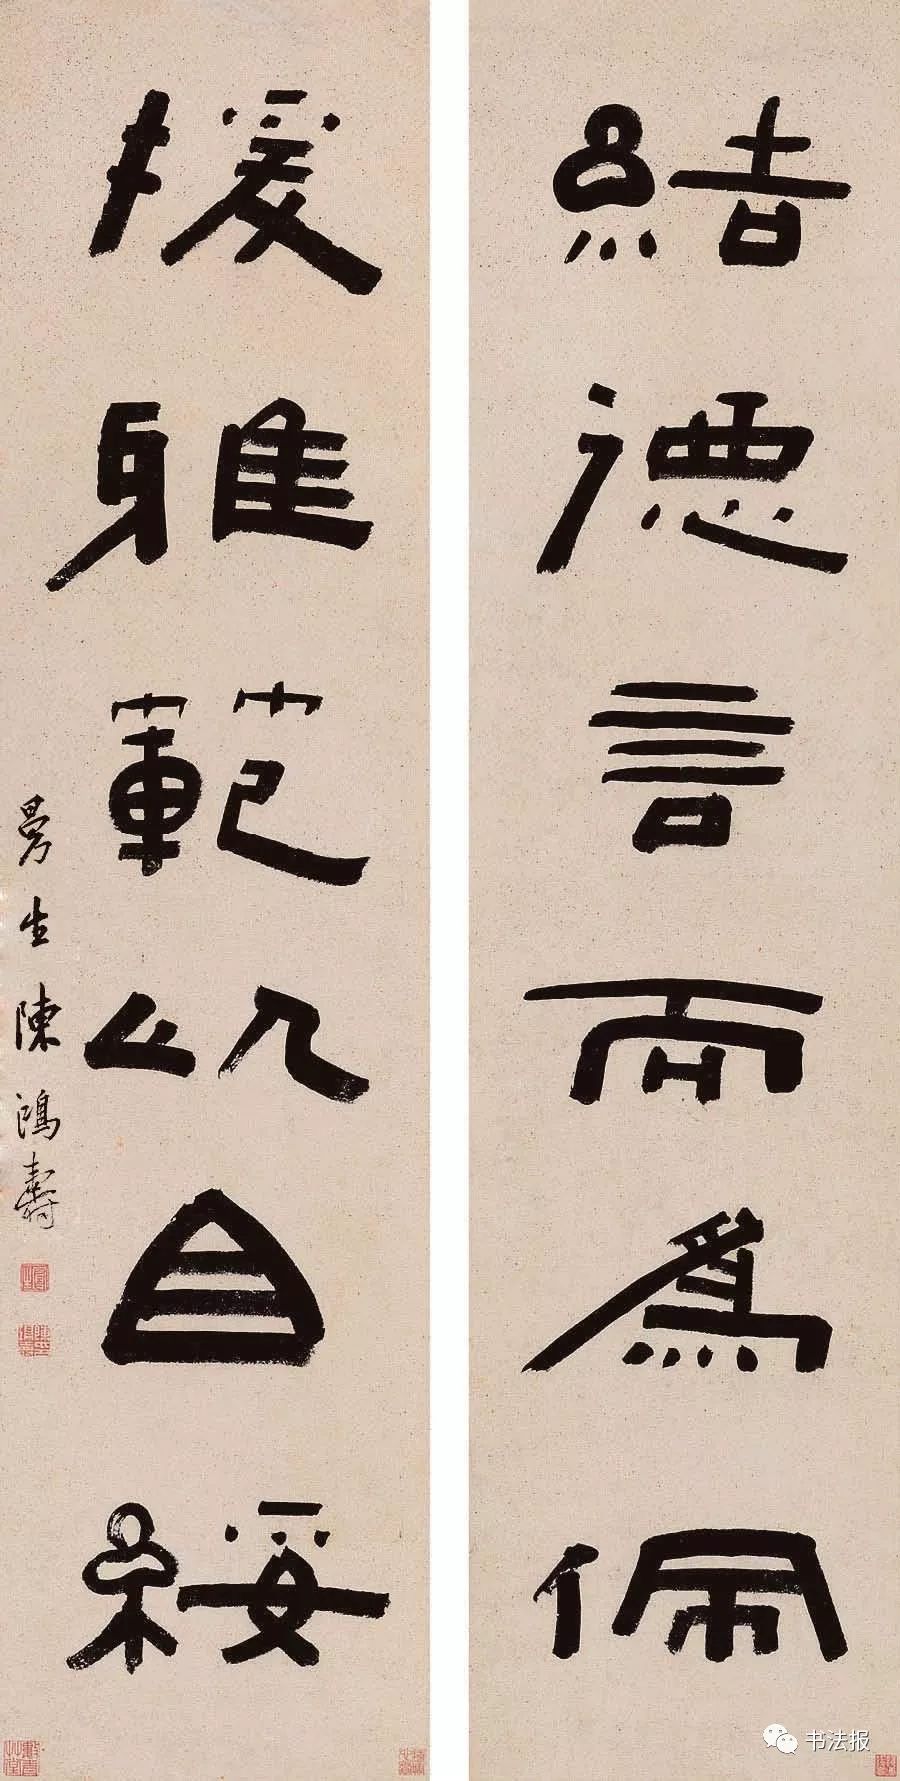 結德言而為佩
援雅範以自綏
曼生陳鴻壽
书法报